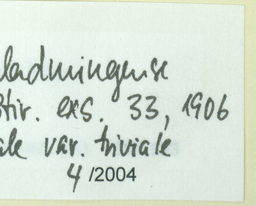 ladmingense
Stir. exs. 33, 1906
ale var. triviale
4/2004